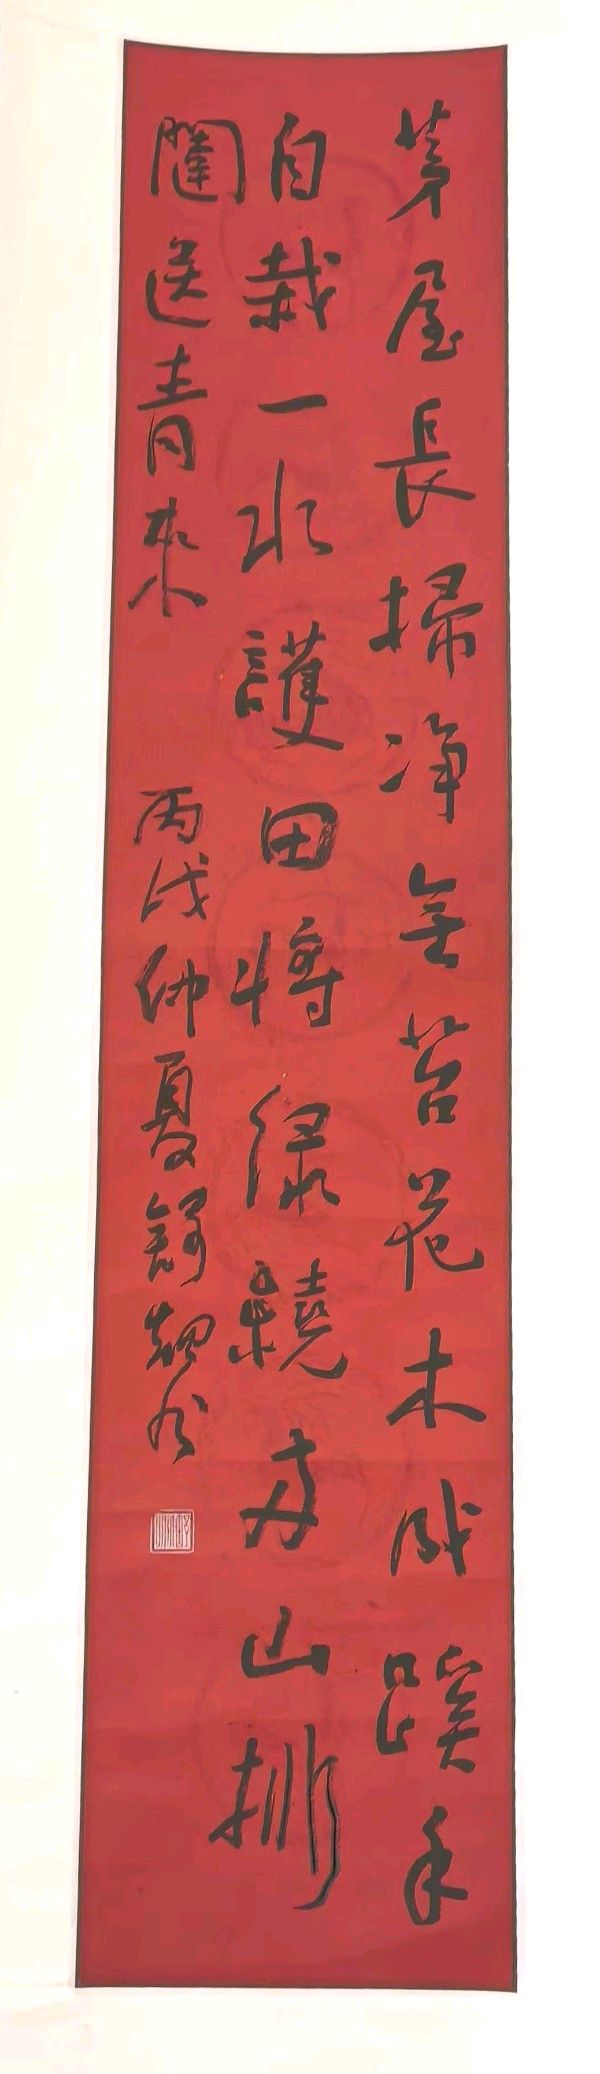 茅屋長掃淨無苔花木成蹊手
自栽一水護田將綠繞兩山排
闥送青來 丙戌仲夏舒